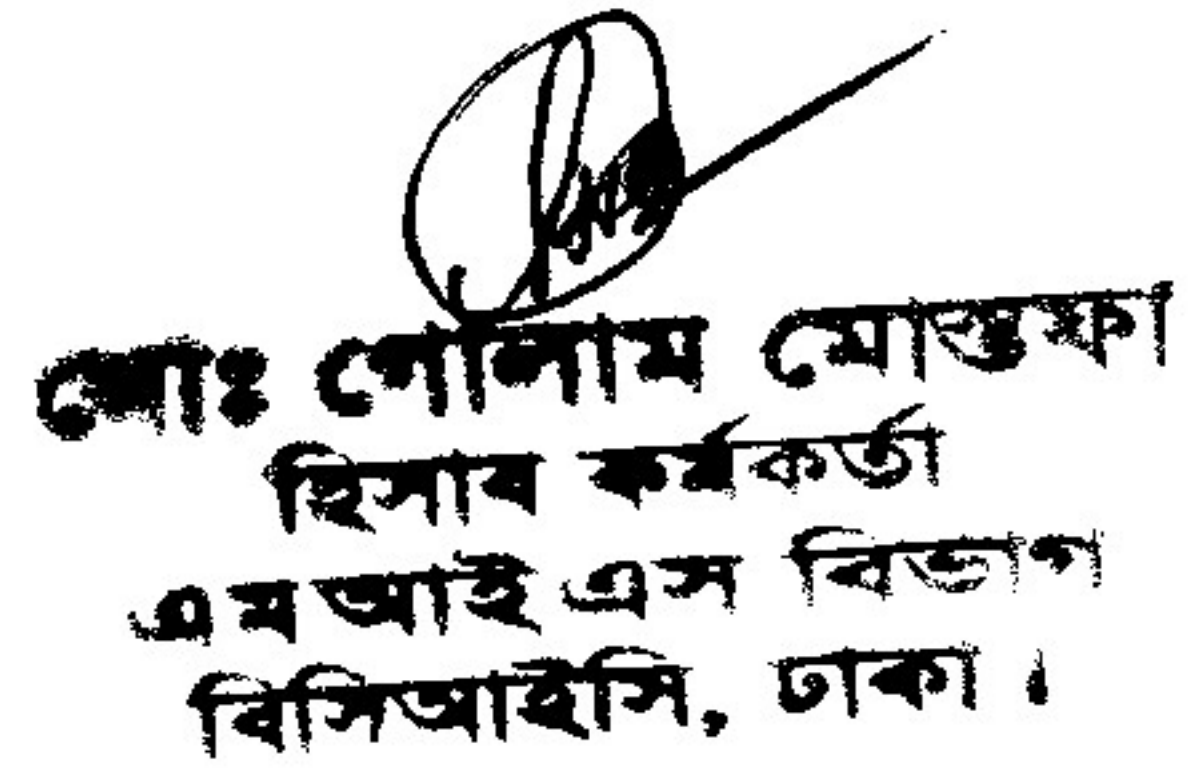 মোঃ গোলাম মোস্তফা
হিসাব কর্মকর্তা
এম আই এস বিভাগ
বিসিআইসি, ঢাকা ।